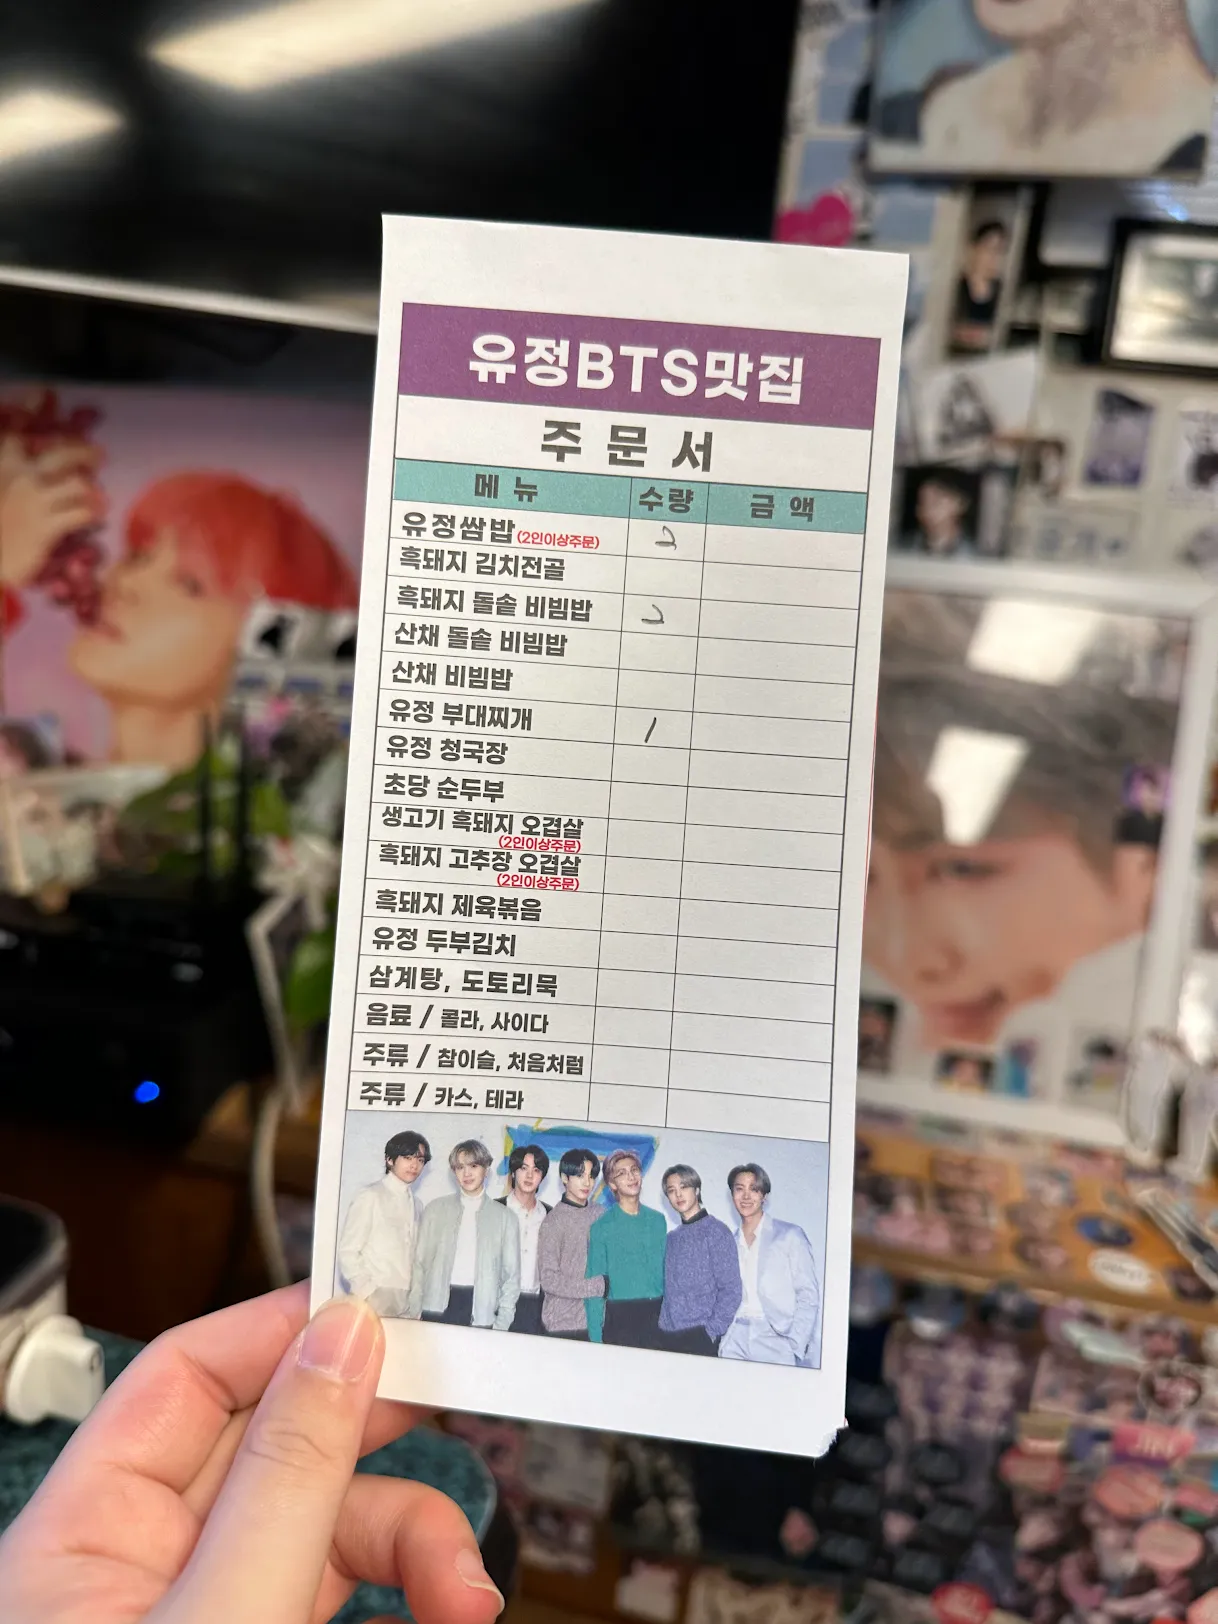 유정BTS맛집
주 문 서
메 뉴 수량 금 액
유정쌈밥(2인이상주문) 2
흑돼지 김치전골
흑돼지 돌솥 비빔밥 2
산채 돌솥 비빔밥
산채 비빔밥
유정 부대찌개 1
유정 청국장
초당 순두부
생고기 흑돼지 오겹살
(2인이상주문)
흑돼지 고추장 오겹살
(2인이상주문)
흑돼지 제육볶음
유정 두부김치
삼계탕, 도토리묵
음료 / 콜라, 사이다
주류 / 참이슬, 처음처럼
주류 / 카스, 테라